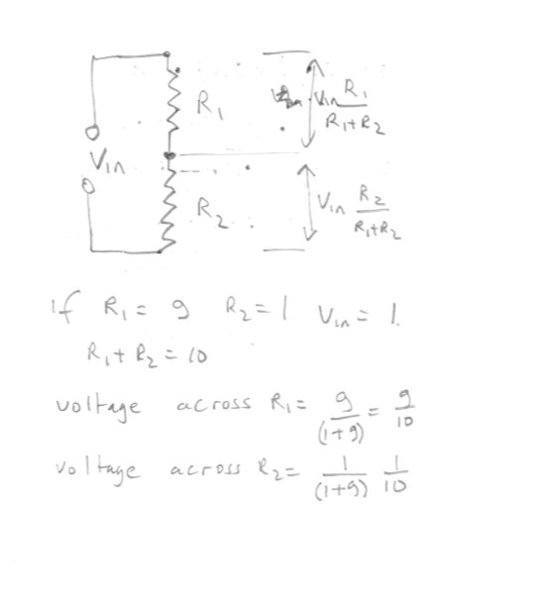 R₁
Vin R₁/(R₁+R₂)
Vin
R₂
Vin R₂/(R₁+R₂)
If R₁ = 9 R₂ = 1 Vin = 1.
R₁ + R₂ = 10
voltage across R₁ = 9/(1+9) = 9/10
voltage across R₂ = 1/(1+9) 1/10